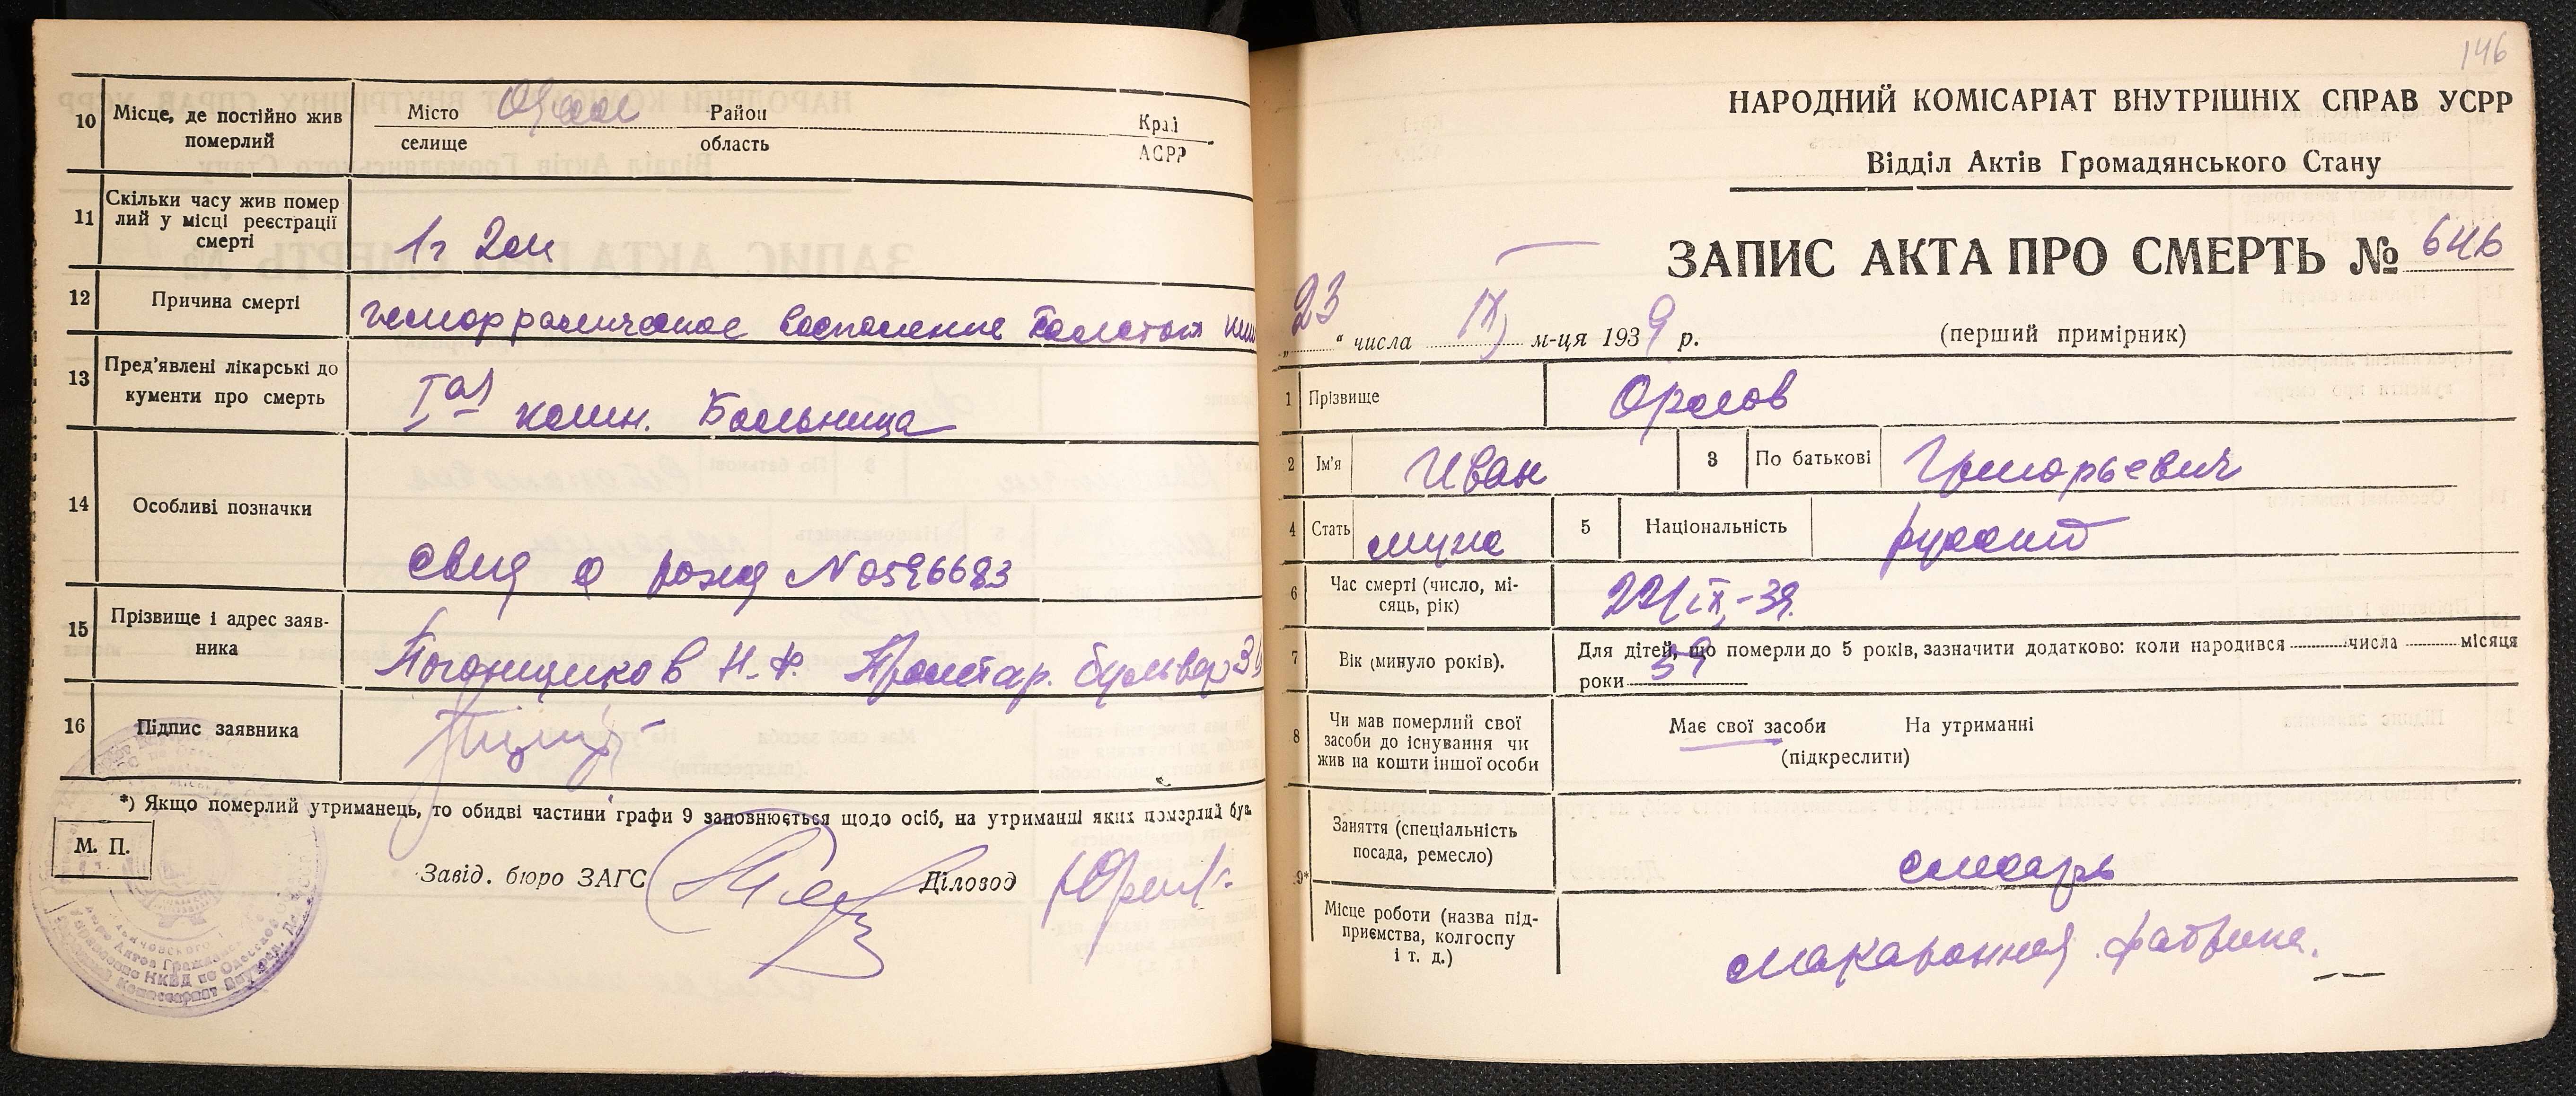 10 Місце, де постійно жив померлий
Місто Одесса Район Край
селище область АСРР
11 Скільки часу жив помер
лий у місці реєстрації
смерті
1г 2м
12 Причина смерті
геморрагическое воспаление толстых киш
13 Пред'явлені лікарські до
кументи про смерть
Iая комн. Больница
14 Особливі позначки
свид о рожд N 0596683
15 Прізвище і адрес заяв-
ника
Погонщиков Н. Ф. Пролетар. бульвар
16 Підпис заявника
*) Якщо померлий утриманець, то обидві частини графи 9 заповнюється щодо осіб, на утриманні яких померлий був.
М. П.
Завід. бюро ЗАГС Діловод
146
НАРОДНИЙ КОМІСАРІАТ ВНУТРІШНІХ СПРАВ УСРР
Відділ Актів Громадянського Стану
ЗАПИС АКТА ПРО СМЕРТЬ № 646
„23“ числа IX м-ця 1939 р. (перший примірник)
1 Прізвище Орлов
2 Ім'я Иван 3 По батькові Григорьевич
4 Стать мужс 5 Національність русский
6 Час смерті (число, мі-
сяць, рік)
22/IX-39.
7 Вік (минуло років).
Для дітей, що померли до 5 років, зазначити додатково: коли народився числа місяця
роки 59
8 Чи мав померлий свої
засоби до існування чи
жив на кошти іншої особи
Має свої засоби На утриманні
(підкреслити)
9* Заняття (спеціальність
посада, ремесло)
слесарь
Місце роботи (назва під-
приємства, колгоспу
і т. д.)
Макаронная фабрика.